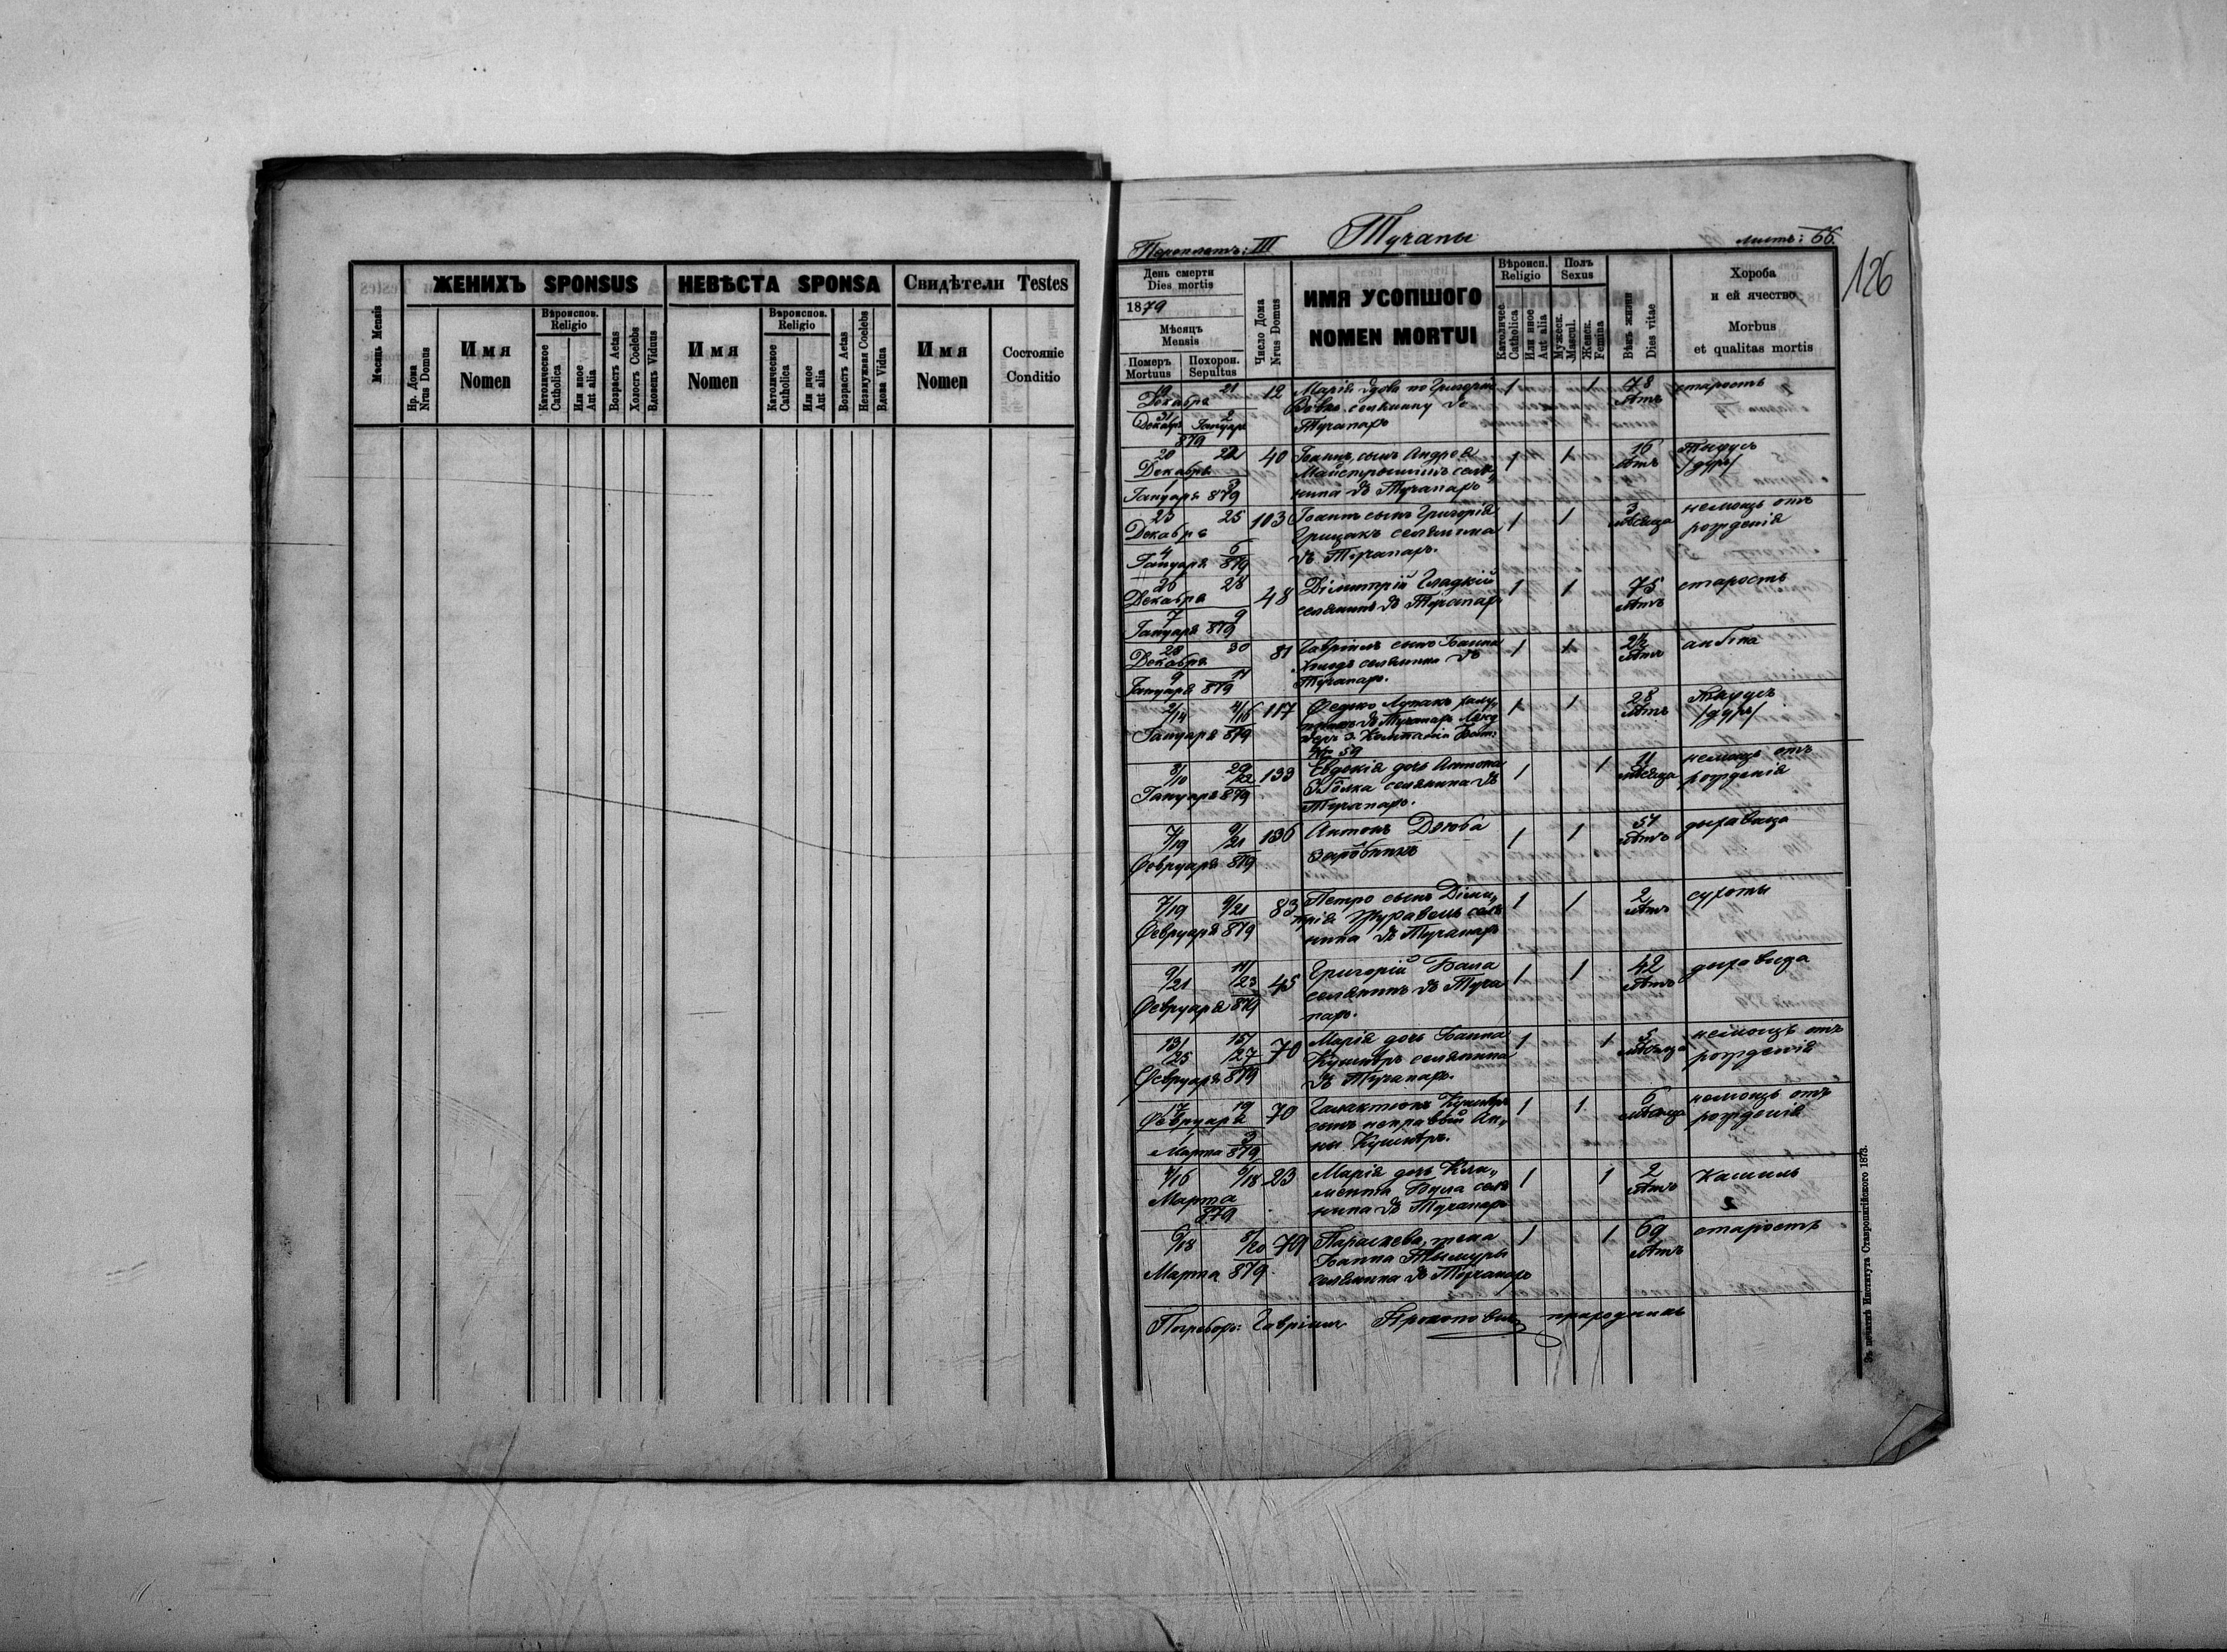 Мѣсяць Mensis
ЖЕНИХЪ SPONSUS
НЕВѢСТА SPONSA
Свидѣтели Testes
Нр. Дома
Nrus Domus
Имя
Nomen
Вѣроиспов.
Religio
Католическое
Catholica
Или иное
Aut alia
Возрастъ Aetas
Холостъ Coelebs
Вдовецъ Viduus
Имя
Nomen
Вѣроиспов.
Religio
Католическое
Catholica
Или иное
Aut alia
Возрастъ Aetas
Незамужная Coelebs
Вдова Vidua
Имя
Nomen
Состояніе
Conditio
Тучапы
листъ: 66.
126
III
День смерти
Dies mortis
1879
Мѣсяцъ
Mensis
Померъ
Mortuus
Похорон.
Sepultus
Число Дома
Nrus Domus
ИМЯ УСОПШОГО
NOMEN MORTUI
Вѣроисп.
Religio
Католичес.
Catholica
Или иное
Aut alia
Полъ
Sexus
Мужеск.
Mascul.
Женск.
Femina
Вѣкъ жизни
Dies vitae
Хороба
и ей ячество
Morbus
et qualitas mortis
19 21 12 Марія вдова по Григорію 1 1 78 старость
Декабра селянину въ лѣтъ
31 2 Тучапахъ
Декабръ Януаръ
879
20 22 40 Іоаннъ, сынъ Андрея 1 1 16 Тыфусъ
Декабръ лѣтъ /дуръ/
1 3
Януаря 879 нина въ Тучапахъ
23 25 103 Іоаннъ сынъ Григорія 1 1 3 немощь отъ
Декабрь Грицакъ селянина мѣсяца рожденія
4 6 въ Тучапахъ.
Януаря 879
26 28 48 Димитрій Гладкій 1 1 75 старость
Декабра селянинъ въ Тучапахъ лѣтъ
7 9
Януаря 879
28 30 81 Гавріилъ сынъ Іоанна 1 1 2½ ангіна
Декабря селянина въ лѣтъ
9 11 Тучапахъ.
Януаря 879
2/14 4/16 117 Федько 1 1 28 Тыфусъ
Януаря 879 въ Тучапахъ лѣтъ /дуръ/
№ 59
8/10 133 Евдокія дочь Антона 1 1 11 немощь отъ
Януаря 879 селянина въ мѣсяца рожденія
Тучапахъ.
7/19 9/21 136 Антонъ Дзюба 1 1 57 дыхавица
Февруаря 879 заробникъ лѣтъ
7/19 9/21 83 Петро сынъ Діми„ 1 1 2 сухоты
Февруаря 879 трія Журавель селя лѣтъ
нина въ Тучапахъ
9/21 11/23 45 Григорій Бала 1 1 42 дыхавица
Февруаря 879 селянинъ въ Туча лѣтъ
пахъ.
13/25 15/27 70 Марія дочь Іоанна 1 1 5 немощь отъ
Февруаря 879 Кушнѣръ селянина мѣсяца рожденія
въ Тучапахъ.
17 19 70 Галактіонъ Кушнѣръ 1 1 6 немощь отъ
Февруаря сынъ неправый Ан„ мѣсяца рожденія
1 3 ны Кушнѣръ.
Марта 879
4/16 6/18 23 Марія дочь Кли„ 1 1 2 Кашель
Марта мента Була селя лѣтъ
879 нина въ Тучапахъ
6/18 8/20 79 Параскева, жена 1 1 69 старость
Марта 879 Іоанна лѣтъ
селянина въ Тучапахъ
Погребохъ: Гавріилъ Прокоповичъ приходникъ
Зъ печатнѣ Института Ставропигійского 1873.